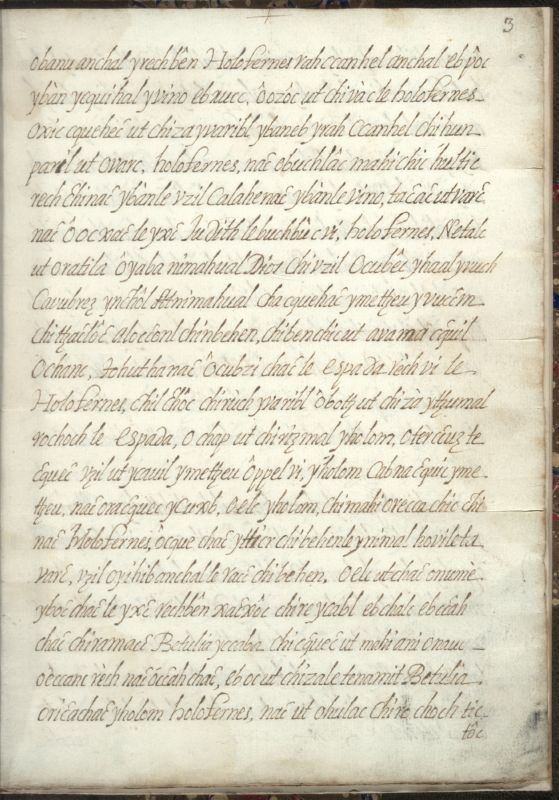 3
obanu anchal yrech bên Holofernes rah ccanhel anchal eb pôc
ybàn ycquihal yvino eb xucc, ôozôc ut chi vàc le holofernes
oxic cquehec ut chiza yvaribl ybaneb yrah Ccanhel chi hun
parèl ut ovarc, holofernes, nac obuchlàc mahi chic hultic
rech chinac ybànle vzil Calahenac ybànle vino, tacàc ut varc
nac ôoc xac le yxc Judith le buchbùc vi, holofernes, Netalc
ut oratila ôyaba nimahual Dios chi vzil Ocubêc yhaal yvuch
Cavubrez ynchôl Attnimahual cha cquehac ymetzeu yvucêm
chi tzaclôc aloclonl chinbehen, chiben chic ut ava ma cquil
Ochanc, tohuthanac ôcubzi chac le espada rèch vi le
Holofernes, chil chôc chirich yvaribl ôbotz ut chizà ytzumal
rochoch le espada, o chap ut chi rizmal yholom, oter cauz te
cquec vzil ut ycauil ymetzeu ôppel vi, yholom Cabna cquic yme
tzeu, nac ora cquec ycuxb, oelc yholom, chi mahi orecca chic chi
nac Holofernes, ocque chac ytticr chibehenle ynimal hovilota
varc, vzil oyihib anchal lo rac chibehen. Oelc ut chac onume
yboc chac le yxc rech bên xacxôc chirc ycabl eb chalc eb ccah
chac chiramacs Betulia yccaba chi cquec ut mobi ani onauc
occanc rèch nac ôccah chac, eb oc ut chizale tenamit Betulia
oricachac yholom holofernes, nac ut ohulac chirc choch tic
tôc